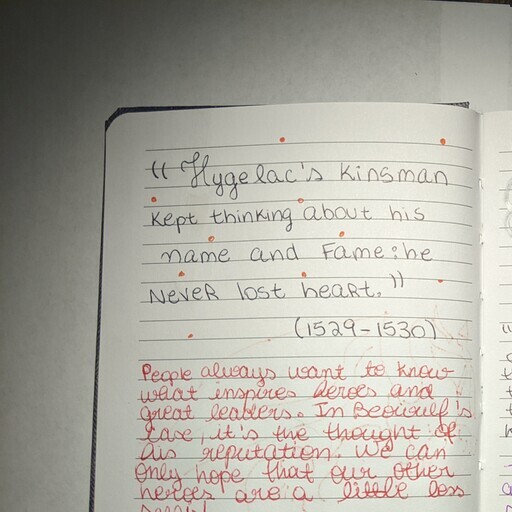 "Hygelac's Kinsman
Kept thinking about his
name and Fame: he
Never lost heart."
(1529-1530)
People always want to know
what inspires heroes and
great leaders. In Beowulf's
case, it's the thought of
his reputation. We can
only hope that our other
heroes are a little less